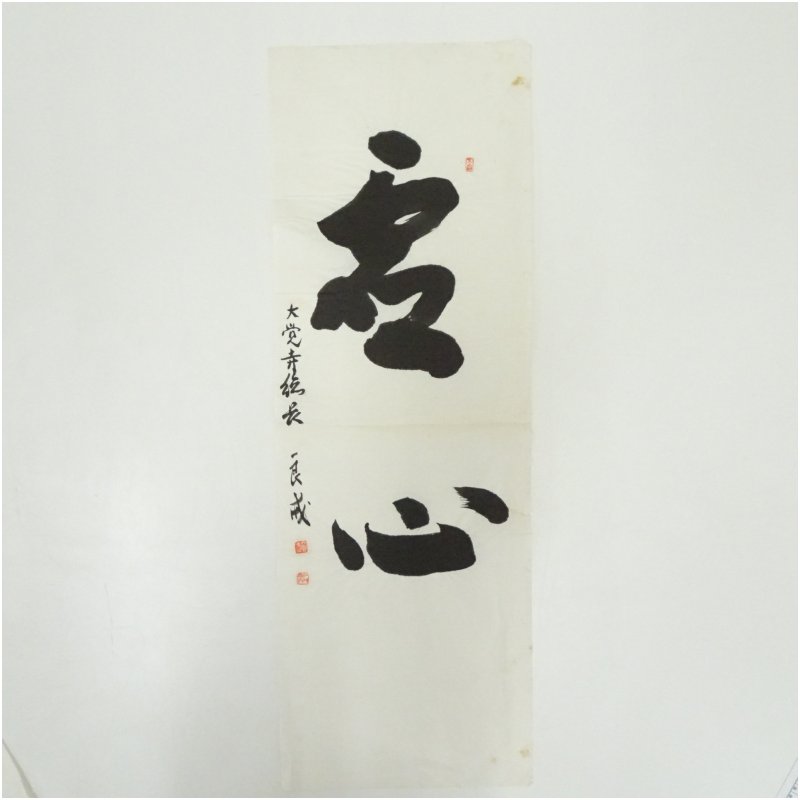 虚心
大覚寺総長 良戒